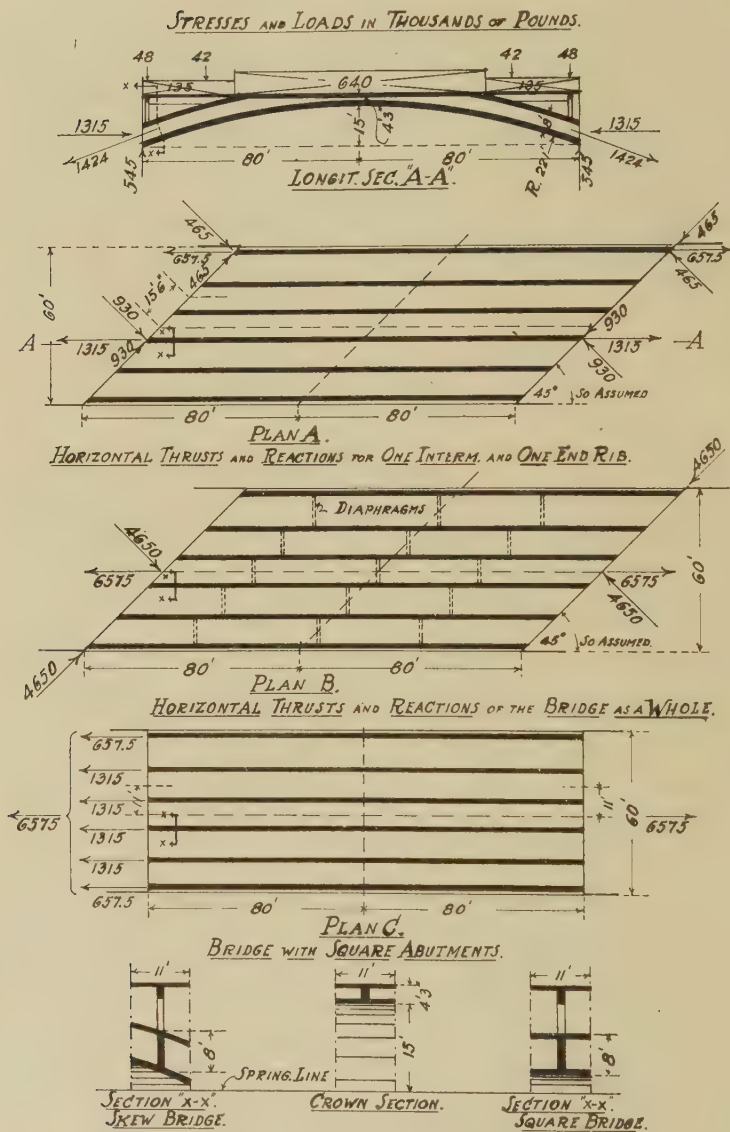 STRESSES AND LOADS IN THOUSANDS OF POUNDS.
48 42 42 48
x 135 640 135
1315 15' 4'3" 8' 1315
1424 545 x 80' 80' R.22' 545 1424
LONGIT. SEC. "A-A".
465 465
657.5 657.5
465 465
60' 15'6"
930 930
A 1315 x 1315 A
930 x 930
45° SO ASSUMED
80' 80'
PLAN A.
HORIZONTAL THRUSTS AND REACTIONS FOR ONE INTERM. AND ONE END RIB.
4650
DIAPHRAGMS
4650
6575 x 6575
x 60'
4650
45° SO ASSUMED.
4650 80' 80'
PLAN B.
HORIZONTAL THRUSTS AND REACTIONS OF THE BRIDGE AS A WHOLE.
657.5
1315
1315 11' 11'
6575 x 60' 6575
1315 x
1315
657.5
80' 80'
PLAN C.
BRIDGE WITH SQUARE ABUTMENTS.
11' 11' 11'
4'3
8' 15' 8'
SPRING. LINE
SECTION "X-X". CROWN SECTION. SECTION "X-X".
SKEW BRIDGE. SQUARE BRIDGE.